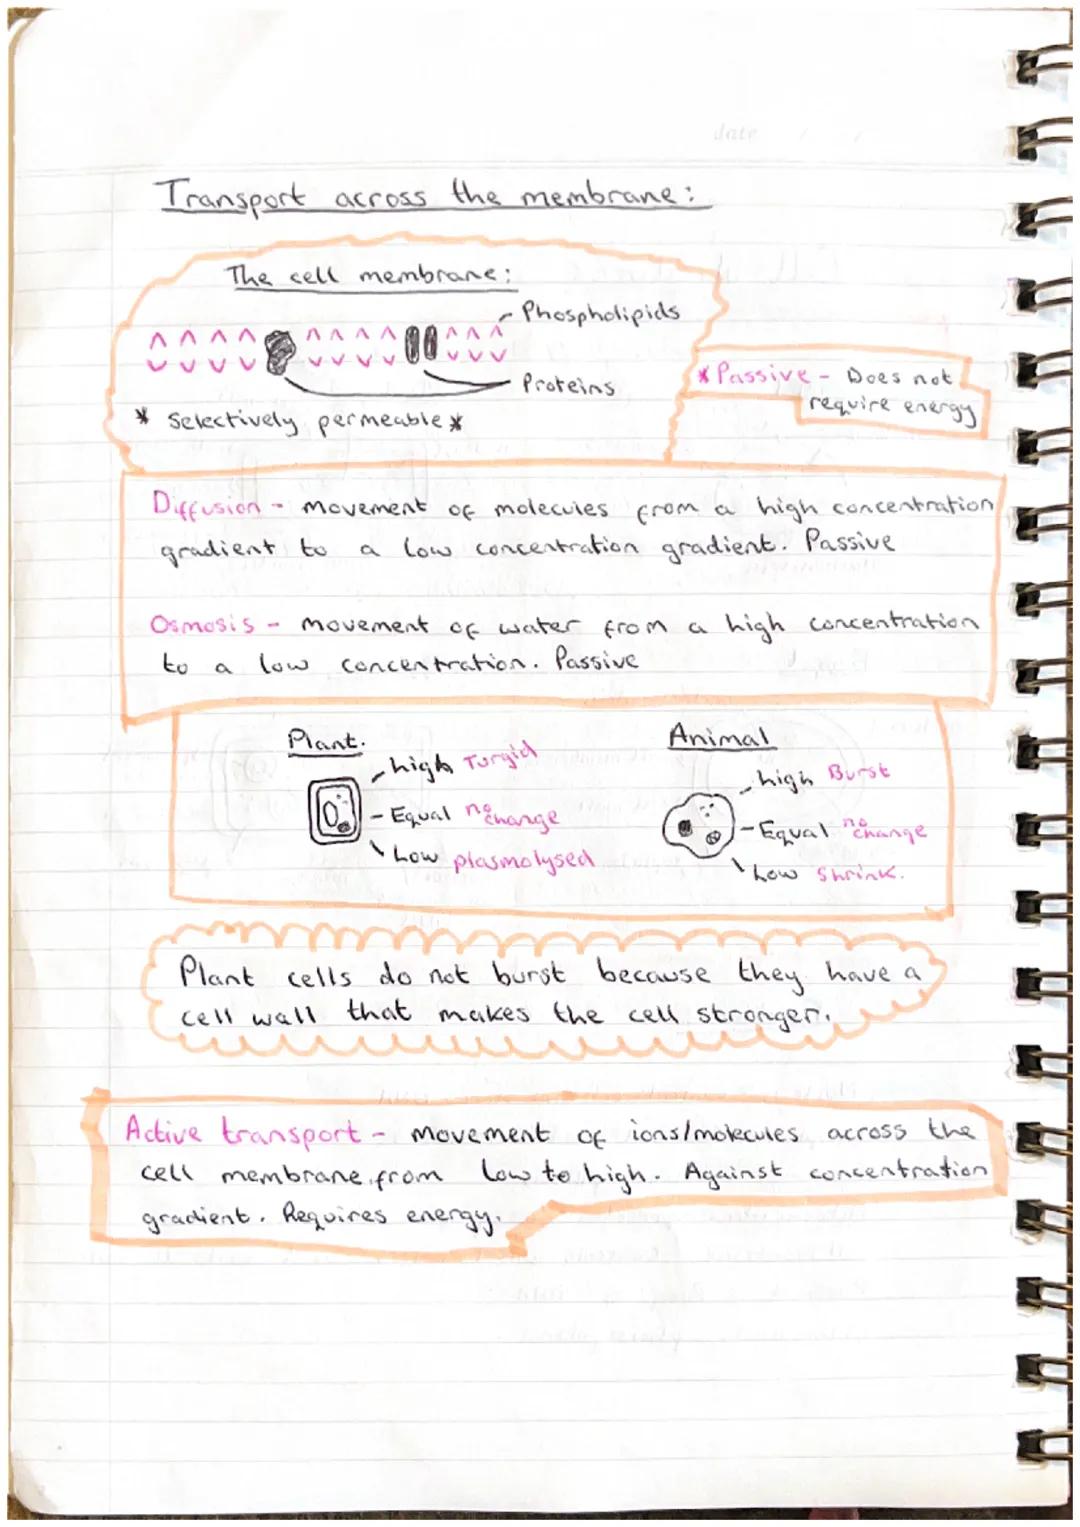 date
Transport across the membrane:
The cell membrane:
Phospholipids
Proteins
* Selectively permeable *
* Passive - Does not
require energy
Diffusion - movement of molecules from a high concentration
gradient to a low concentration gradient. Passive
Osmosis - movement of water from a high concentration
to a low concentration. Passive
Plant.
high Turgid
- Equal no change
Low plasmolysed
Animal
high Burst
- Equal no change
Low Shrink.
Plant cells do not burst because they have a
cell wall that makes the cell stronger.
Active transport - movement of ions/molecules across the
cell membrane from low to high. Against concentration
gradient. Requires energy.